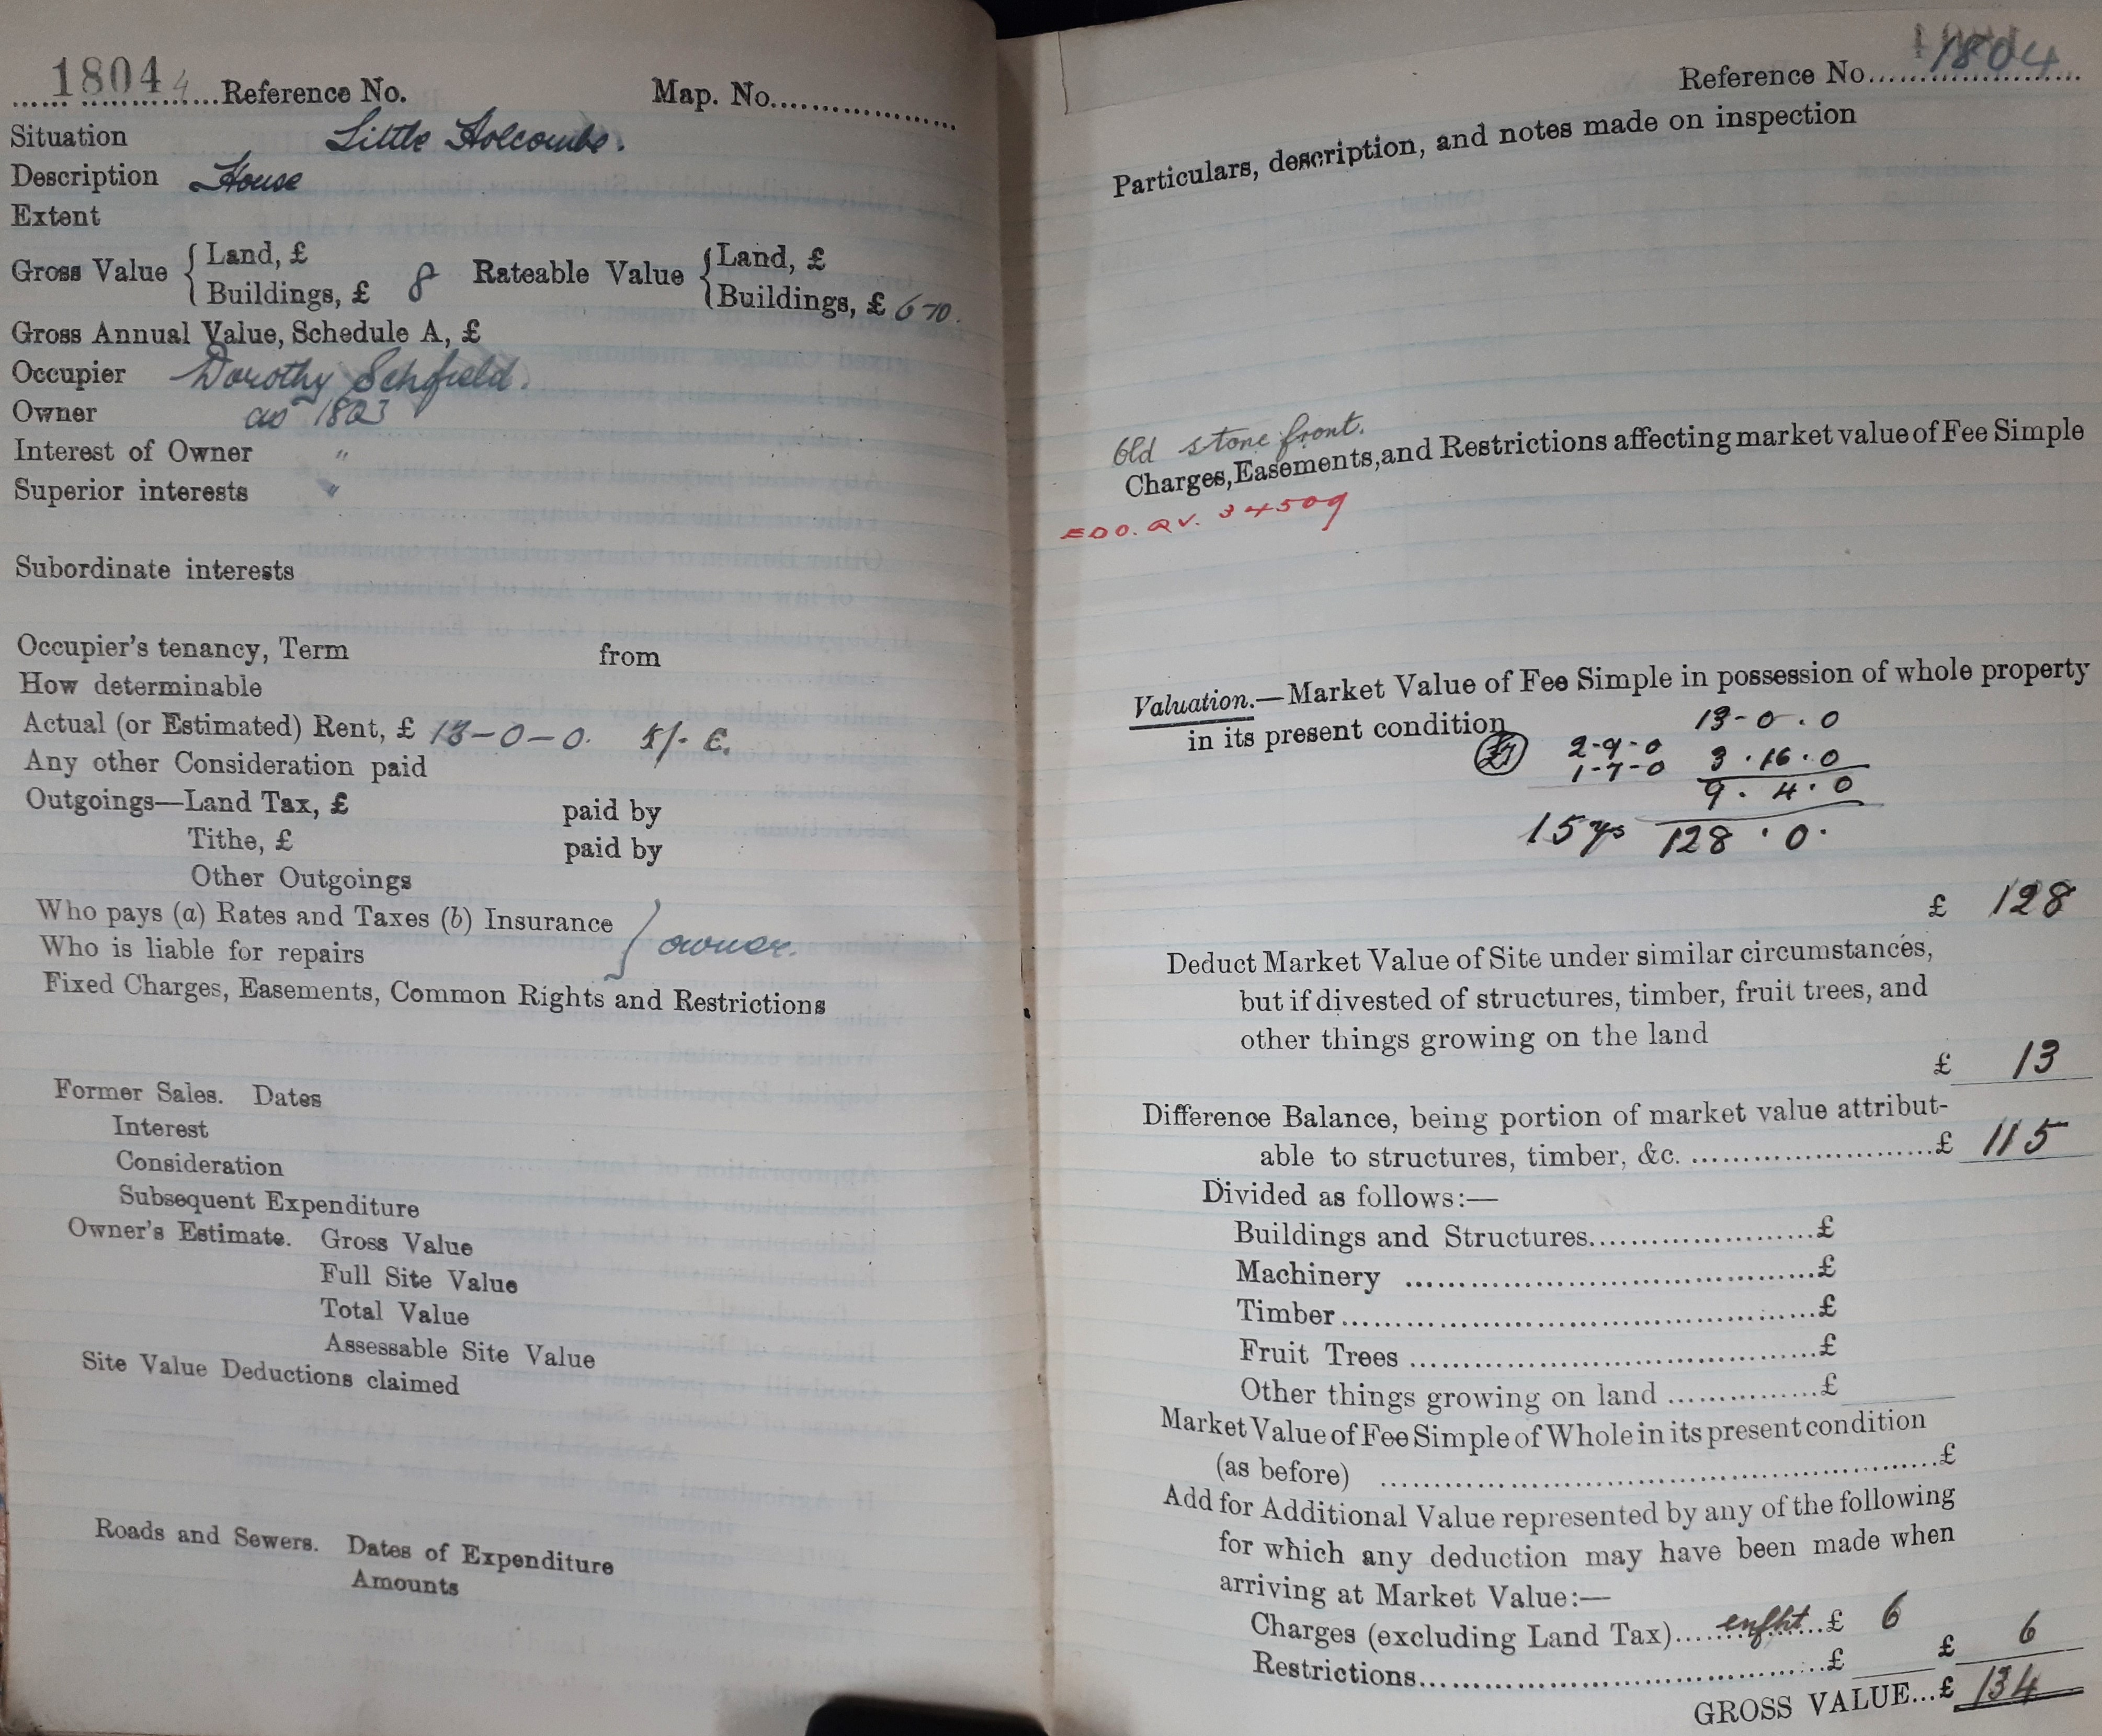 1804 4 Reference No. Map. No.
Situation Little Holcombe.
Description House
Extent
Gross Value { Land, £ Rateable Value { Land, £
Buildings, £ 8 Buildings, £ 6-10.
Gross Annual Value, Schedule A, £
Occupier Dorothy Schfield.
Owner as 1803
Interest of Owner "
Superior interests "
Subordinate interests
Occupier's tenancy, Term from
How determinable
Actual (or Estimated) Rent, £ 13-0-0. 5/-
Any other Consideration paid
Outgoings—Land Tax, £ paid by
Tithe, £ paid by
Other Outgoings
Who pays (a) Rates and Taxes (b) Insurance } owner.
Who is liable for repairs
Fixed Charges, Easements, Common Rights and Restrictions
Former Sales. Dates
Interest
Consideration
Subsequent Expenditure
Owner's Estimate. Gross Value
Full Site Value
Total Value
Assessable Site Value
Site Value Deductions claimed
Roads and Sewers. Dates of Expenditure
Amounts
Reference No. 1804
Particulars, description, and notes made on inspection
Old stone front.
Charges, Easements, and Restrictions affecting market value of Fee Simple
EDO. QV. 34509
Valuation.—Market Value of Fee Simple in possession of whole property
in its present condition 13-0.0
2-9-0 3.16.0
1-7-0
9.4.0
15 yrs 128.0.
£ 128
Deduct Market Value of Site under similar circumstances,
but if divested of structures, timber, fruit trees, and
other things growing on the land
£ 13
Difference Balance, being portion of market value attribut-
able to structures, timber, &c. £ 115
Divided as follows:—
Buildings and Structures £
Machinery £
Timber £
Fruit Trees £
Other things growing on land £
Market Value of Fee Simple of Whole in its present condition
(as before) £
Add for Additional Value represented by any of the following
for which any deduction may have been made when
arriving at Market Value:—
Charges (excluding Land Tax) enfht £ 6
Restrictions £ £ 6
GROSS VALUE...£ 134